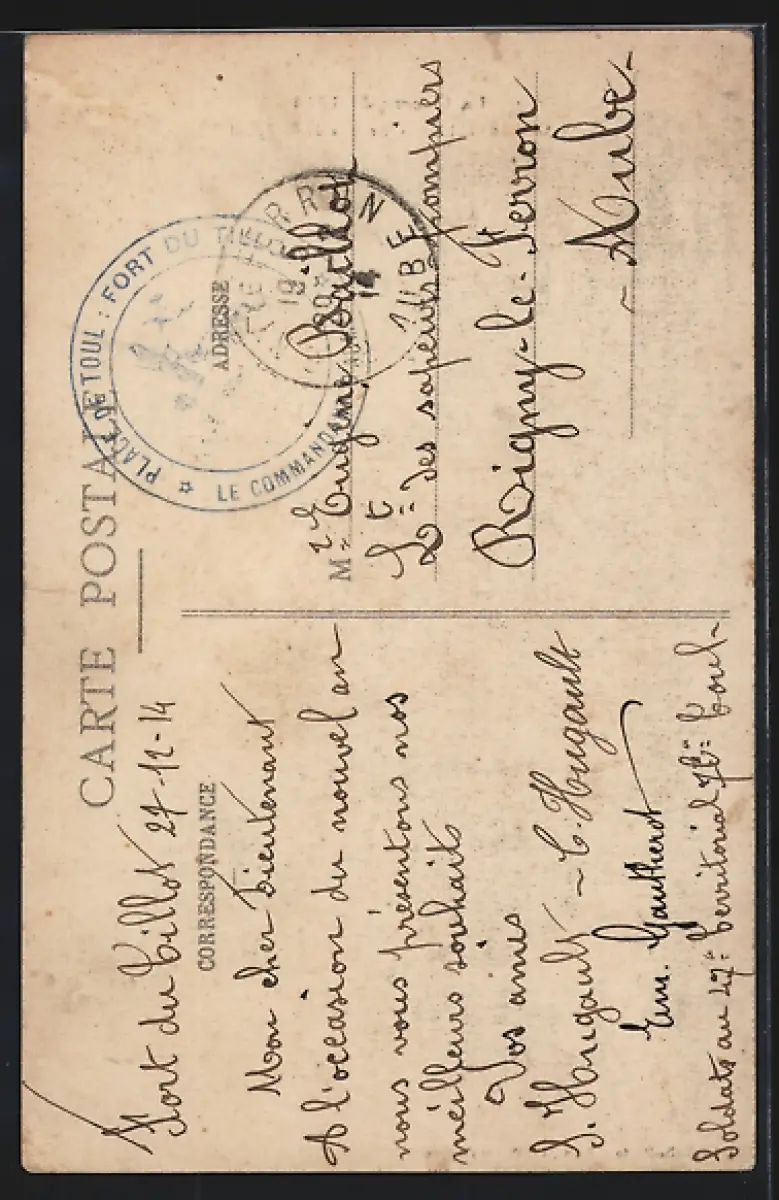 CARTE POSTALE
Fort du Tillot 27-12-14
CORRESPONDANCE
Mon cher Lieutenant
A l'occasion du nouvel an
nous vous présentons nos
meilleurs souhaits
Vos amis
S. Hugault ~ C. Hugault
Em. Gautherot
Soldats au 47e Territorial Toul-
ADRESSE
PLACE DE TOUL : FORT DU TILLOT
LE COMMANDANT
19
14
Mr Eugène
Lt des sapeurs-pompiers
Rigny-le-Ferron
~ Aube -